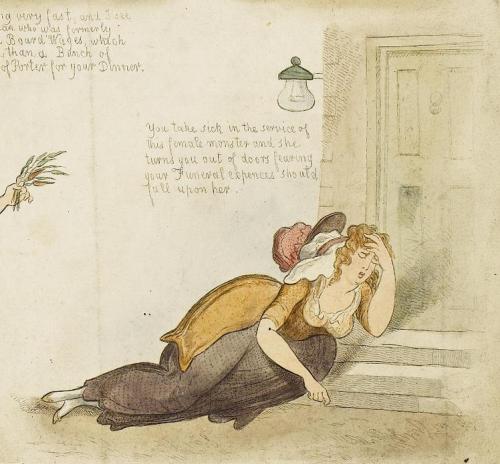 ng very fast, and I see
an who was formerly
Board Wages, which
than a Bunch of
of Porter for your Dinner.
You take sick in the service of
this female monster and she
turns you out of doors fearing
your Funeral expences should
fall upon her.